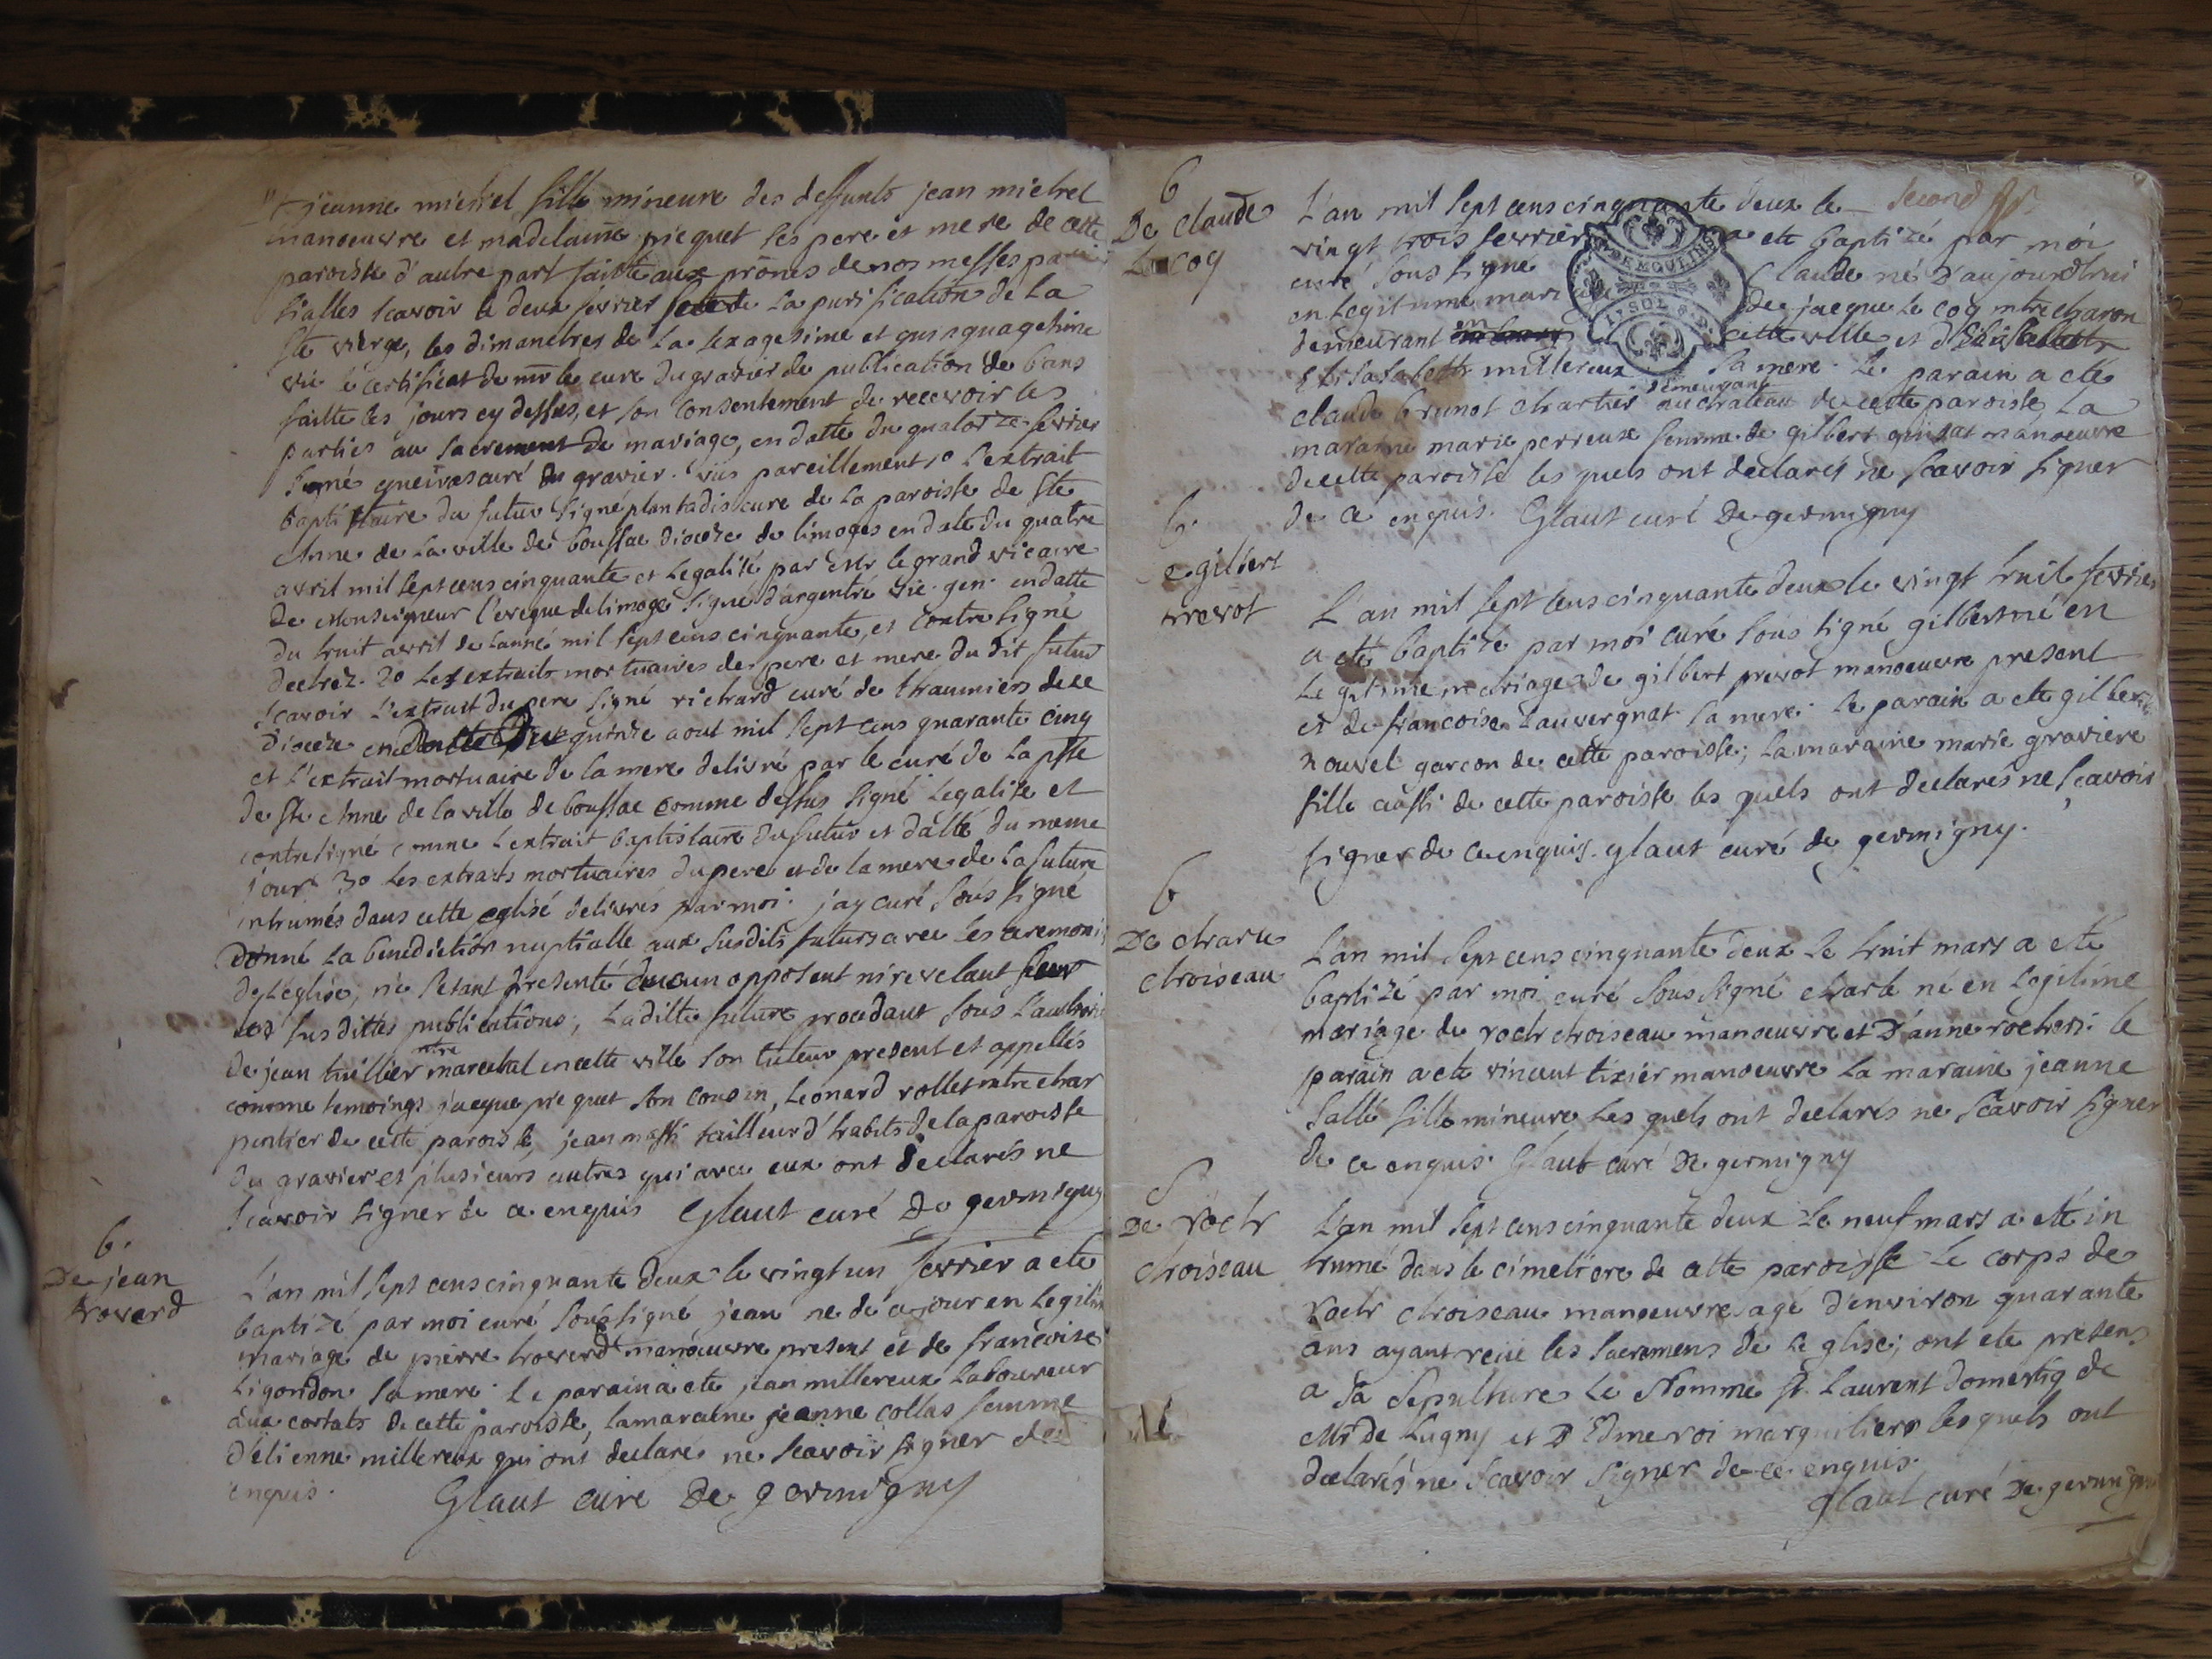 et jeanne michel fille mineure des deffunts jean michel
manoeuvre et madelaine picquet ses pere et mere de cette
paroisse d'autre part faitte aux prônes de nos messes paroi
sialles scavoir le deux fevrier la purification de la
ste vierge, les dimanches de la sexagesime et quinquagesime
vu le certificat de mr le curé du gravier de publication de bans
faitte les jours cy dessus, et son consentement de recevoir les
parties au sacrement de mariage, en datte du quatorze fevrier
signé curé du gravier. vûs pareillement 1o l'extrait
baptistaire du futur signé plantadis curé de la paroisse de ste
Anne de la ville de boussac diocèze de limoges en date du quatre
avril mil sept cens cinquante et legalisé par Mr le grand vicaire
de Monseigneur l'eveque de limoge signé d'argentré vic. gen. en datte
du huit avril de l'anné mil sept cens cinquante, et contresigné
2o les extraits mortuaires des pere et mere du dit futur
scavoir l'extrait du pere signé richard curé de thaumiers de ce
diocèze en datte du quinze aout mil sept cens quarante cinq
et l'extrait mortuaire de la mere delivré par le curé de la psse
de ste Anne de la ville de boussac comme dessus signé legalisé et
contresigné comme l'extrait baptistaire du futur et datté du meme
jour 3o les extraits mortuaires du pere et de la mere de la future
inhumés dans cette eglise delivrés par moi. j'ay curé sous signé
donné la benediction nuptialle aux susdits futurs avec les ceremonies
de l'eglise; ne s'etant presenté aucun opposent ni revelant sur
les susdittes publications, laditte future procedant sous l'authori
de jean tuillier mtre marechal en cette ville son tuteur present et appellés
comme temoings jacque picquet son cousin, Leonard rollet mtre char
pentier de cette paroisse, jean massi tailleur d'habits de la paroisse
du gravier et plusieurs autres qui avec eux ont declarés ne
scavoir signer de ce enquis Glaut curé De germigny
b.
De jean
troverd
L'an mil sept cens cinquante deux le vingt un fevrier a eté
baptizé par moi curé soussigné jean né de ce jour en legitim
mariage de pierre troverd manoeuvre present et de francoise
Ligondon sa mere. le parain a eté jean millereux laboureur
aux cottats de cette paroisse, la maraine jeanne collas femme
d'etienne millereux qui ont declaré ne scavoir signer de
enquis. Glaut curé De germigny
b
De Claude
Le coq
second
L'an mil sept cens cinquante deux le
vingt trois fevrier a eté baptizé par moi
curé sous signé Claude né d'aujourdhui
en legitime mari de jacque Le coq mtre charon
demeurant en cette ville et d'
Elisabeth millereux sa mere. Le parain a eté
claude brunot chartier demeurant au chateau de cette paroisse, la
maraine marie perreuse femme de gilbert manoeuvre
de cette paroisse les quels ont declarés ne scavoir signer
de ce enquis. Glaut curé De germigny
b.
e gilbert
prevot
L'an mil sept cens cinquante deux le vingt huit fevrier
a eté baptizé par moi curé sous signé gilbert né en
Legitime mariage de gilbert prevot manoeuvre present
et de francoise Lauvergnat sa mere. le parain a eté gilbert
nouvel garcon de cette paroisse; la maraine marie graviere
fille aussi de cette paroisse les quels ont declarés ne scavoir
signer de ce enquis. glaut curé de germigny.
b
De charle
choiseau
L'an mil sept cens cinquante deux le huit mars a eté
baptizé par moi curé sous signé charle né en legitime
mariage de roch choiseau manoeuvre et d'anne rochers: le
parain a eté vincent tixier manoeuvre La maraine jeanne
sallé fille mineure, les quels ont declarés ne scavoir signer
de ce enquis. Glaut curé De germigny
S
De roch
choiseau
L'an mil sept cens cinquante deux le neuf mars a eté in
humé dans le cimetiere de cette paroisse le corps de
roch choiseau manoeuvre agé d'environ quarante
ans ayant recue les sacremens de leglise; ont eté presens
a sa sepulture Le Nommé st Laurent domestiq de
Mr de Lugny et D Edme roi marguiliers les quels ont
declarés ne scavoir signer de ce enquis.
glaut curé De germigny